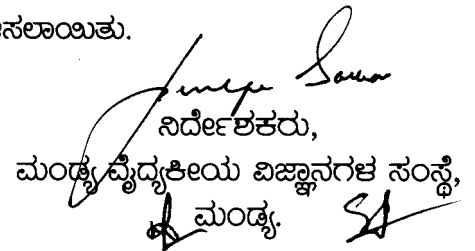 ಸಲಾಯಿತು.
ನಿರ್ದೇಶಕರು,
ಮಂಡ್ಯ ವೈದ್ಯಕೀಯ ವಿಜ್ಞಾನಗಳ ಸಂಸ್ಥೆ,
ಮಂಡ್ಯ.